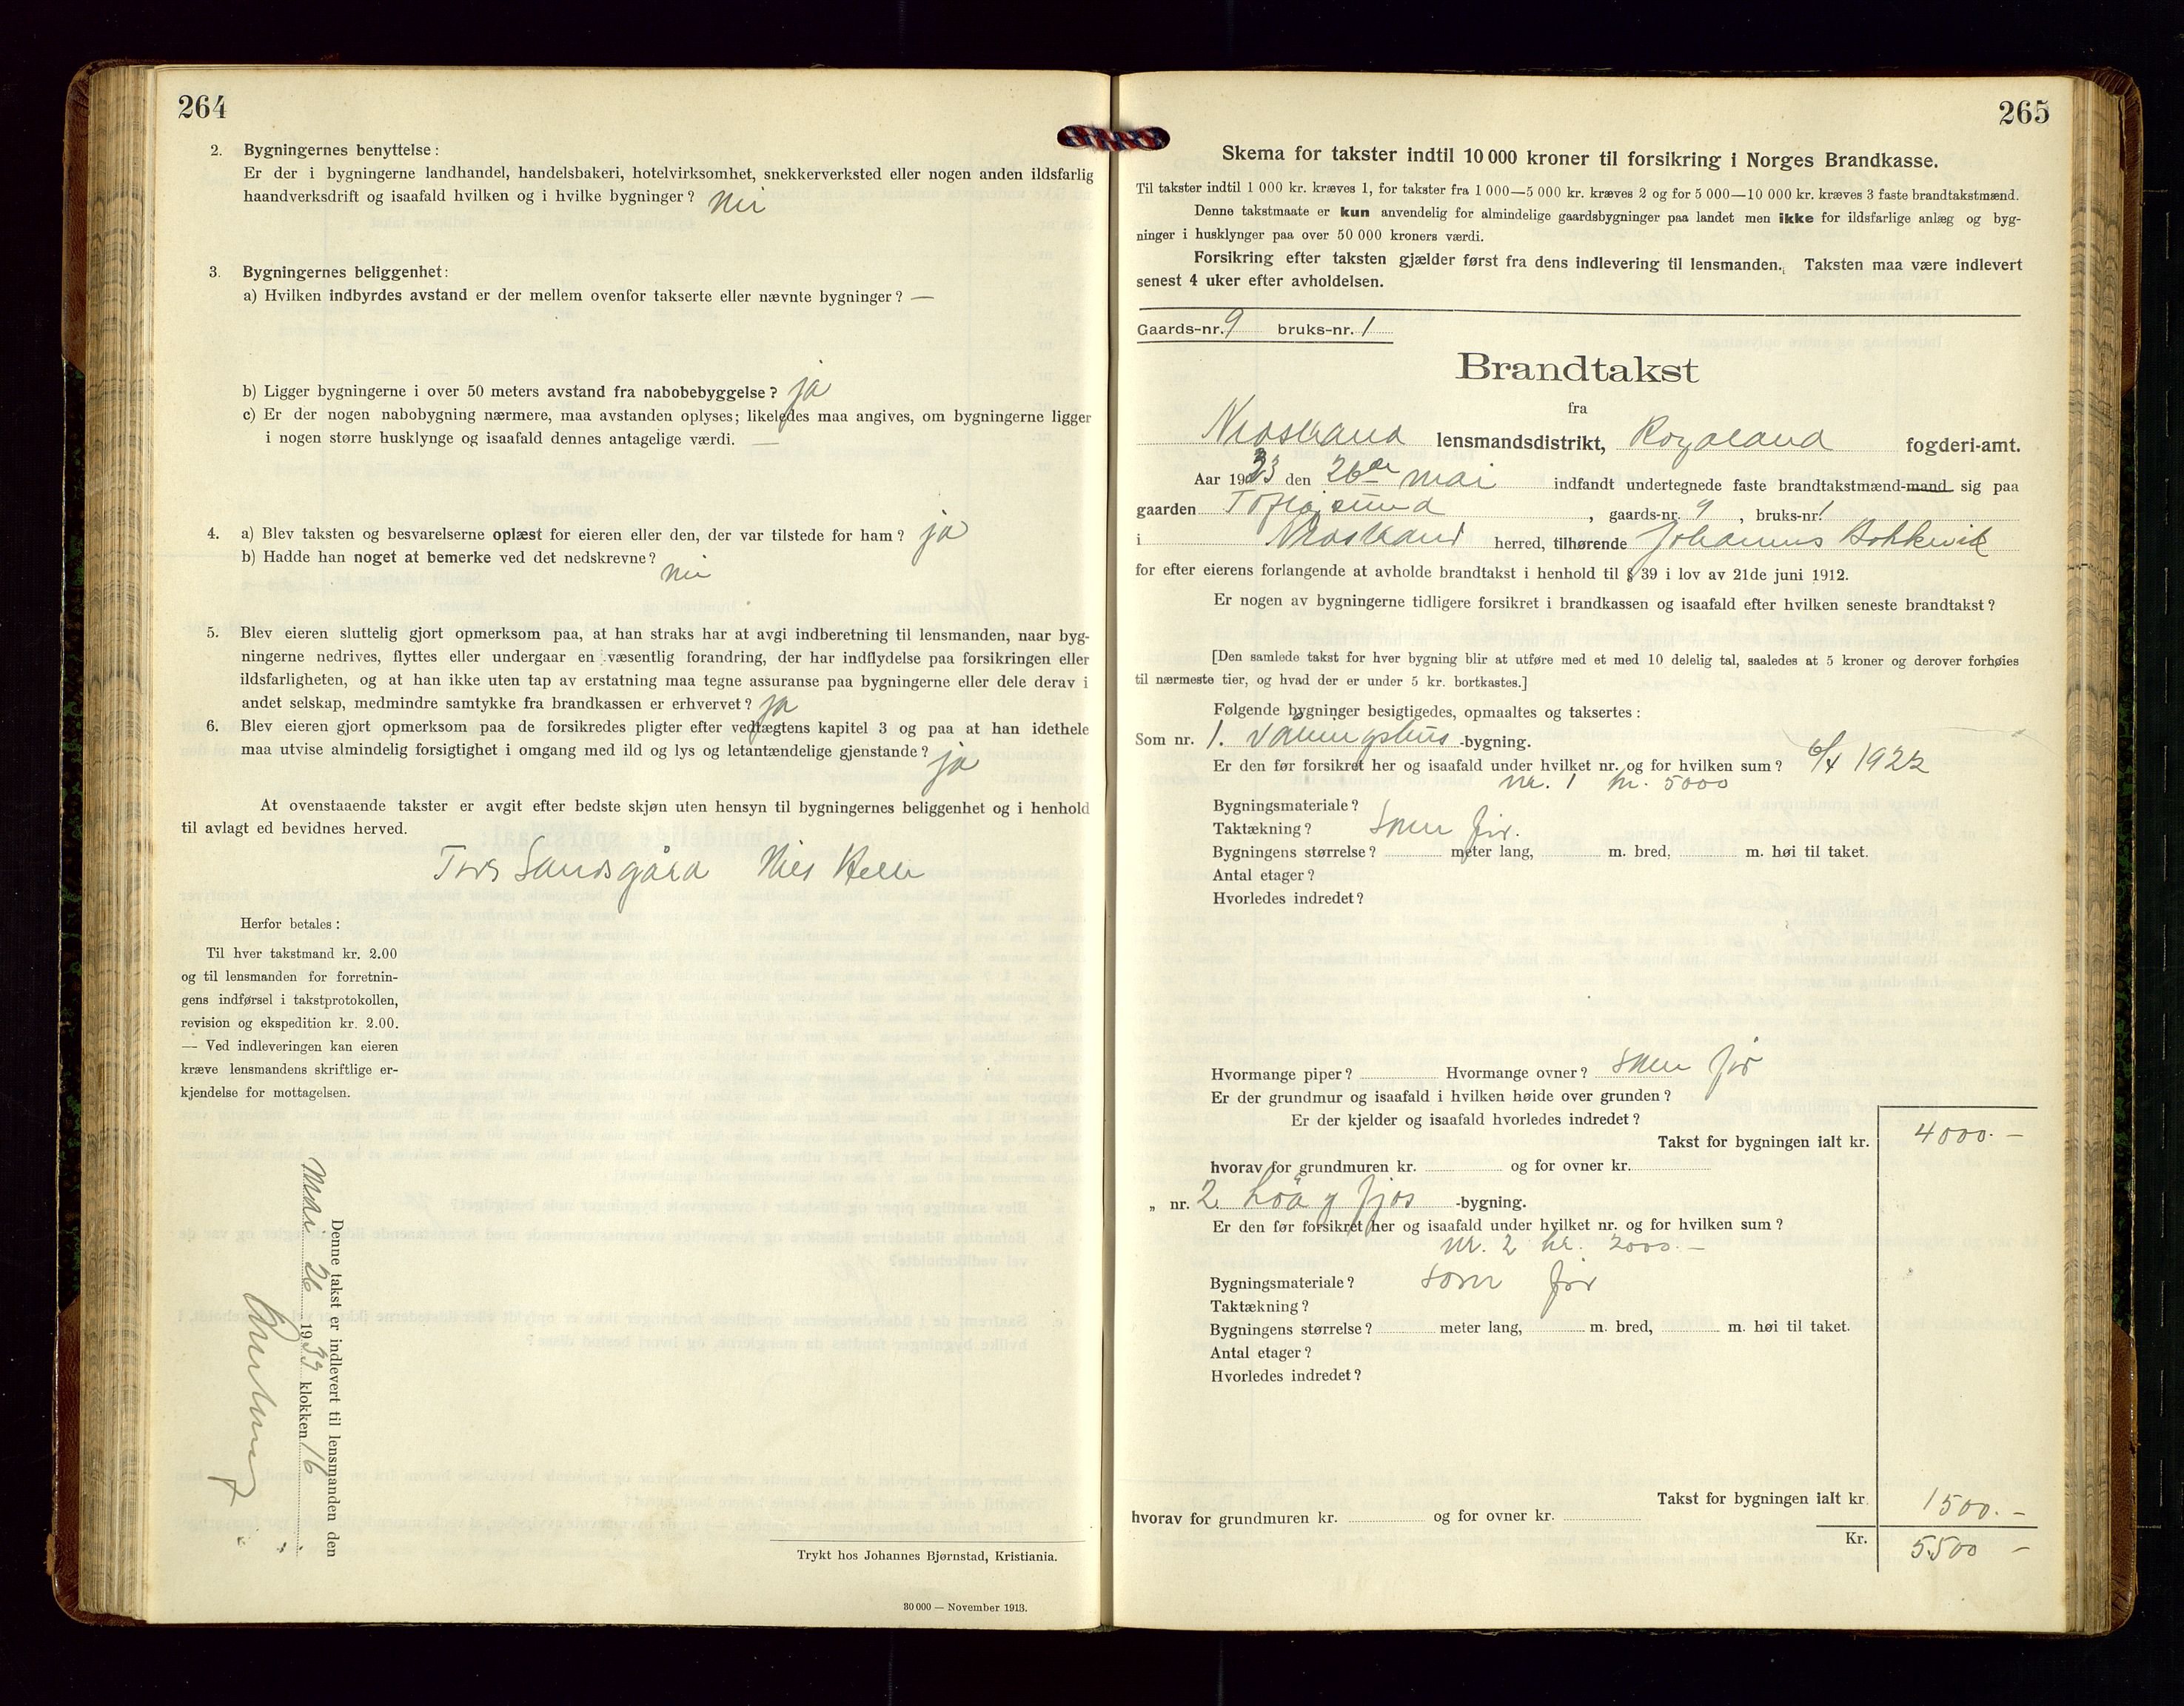 264
2. Bygningernes benyttelse:
Er der i bygningerne landhandel, handelsbakeri, hotelvirksomhet, snekkerverksted eller nogen anden ildsfarlig
haandverksdrift og isaafald hvilken og i hvilke bygninger? Nei
3. Bygningernes beliggenhet:
a) Hvilken indbyrdes avstand er der mellem ovenfor takserte eller nævnte bygninger? —
b) Ligger bygningerne i over 50 meters avstand fra nabobebyggelse? ja
c) Er der nogen nabobygning nærmere, maa avstanden oplyses; likeledes maa angives, om bygningerne ligger
i nogen større husklynge og isaafald dennes antagelige værdi. —
4. a) Blev taksten og besvarelserne oplæst for eieren eller den, der var tilstede for ham? ja
b) Hadde han noget at bemerke ved det nedskrevne? nei
5. Blev eieren sluttelig gjort opmerksom paa, at han straks har at avgi indberetning til lensmanden, naar byg-
ningerne nedrives, flyttes eller undergaar en væsentlig forandring, der har indflydelse paa forsikringen eller
ildsfarligheten, og at han ikke uten tap av erstatning maa tegne assuranse paa bygningerne eller dele derav i
andet selskap, medmindre samtykke fra brandkassen er erhvervet? ja
6. Blev eieren gjort opmerksom paa de forsikredes pligter efter vedtægtens kapitel 3 og paa at han idethele
maa utvise almindelig forsigtighet i omgang med ild og lys og letantændelige gjenstande? ja
At ovenstaaende takster er avgit efter bedste skjøn uten hensyn til bygningernes beliggenhet og i henhold
til avlagt ed bevidnes herved.
Tors Sandsgård Nils Helle
Herfor betales:
Til hver takstmand kr. 2.00
og til lensmanden for forretnin-
gens indførsel i takstprotokollen,
revision og ekspedition kr. 2.00.
— Ved indleveringen kan eieren
kræve lensmandens skriftlige er-
kjendelse for mottagelsen.
Denne takst er indlevert til lensmanden den
Mai 26 1933 klokken 16
Trykt hos Johannes Bjørnstad, Kristiania.
30 000 — November 1913.
265
Skema for takster indtil 10 000 kroner til forsikring i Norges Brandkasse.
Til takster indtil 1 000 kr. kræves 1, for takster fra 1 000—5 000 kr. kræves 2 og for 5 000—10 000 kr. kræves 3 faste brandtakstmænd.
Denne takstmaate er kun anvendelig for almindelige gaardsbygninger paa landet men ikke for ildsfarlige anlæg og byg-
ninger i husklynger paa over 50 000 kroners værdi.
Forsikring efter taksten gjælder først fra dens indlevering til lensmanden. Taksten maa være indlevert
senest 4 uker efter avholdelsen.
Gaards-nr. 9 bruks-nr. 1
Brandtakst
fra
Nedstrand lensmandsdistrikt, Rogaland fogderi-amt.
Aar 1933 den 26de mai indfandt undertegnede faste brandtakstmænd-mand sig paa
gaarden , gaards-nr. 9 , bruks-nr. 1
i Nedstrand herred, tilhørende Johannes Bokkevik
for efter eierens forlangende at avholde brandtakst i henhold til § 39 i lov av 21de juni 1912.
Er nogen av bygningerne tidligere forsikret i brandkassen og isaafald efter hvilken seneste brandtakst?
[Den samlede takst for hver bygning blir at utføre med et med 10 delelig tal, saaledes at 5 kroner og derover forhøies
til nærmeste tier, og hvad der er under 5 kr. bortkastes.]
Følgende bygninger besigtigedes, opmaaltes og taksertes:
Som nr. 1. Våningshus -bygning.
Er den før forsikret her og isaafald under hvilket nr. og for hvilken sum? 6/4 1922
nr. 1 kr. 5000
Bygningsmateriale?
Taktækning? Som før.
Bygningens størrelse? meter lang, m. bred, m. høi til taket.
Antal etager?
Hvorledes indredet?
Hvormange piper? Hvormange ovner? som før
Er der grundmur og isaafald i hvilken høide over grunden?
Er der kjelder og isaafald hvorledes indredet?
Takst for bygningen ialt kr. 4000.-
hvorav for grundmuren kr. og for ovner kr.
„ nr. 2. Løa og fjøs -bygning.
Er den før forsikret her og isaafald under hvilket nr. og for hvilken sum?
nr. 2 kr. 2000.-
Bygningsmateriale? som før
Taktækning?
Bygningens størrelse? meter lang, m. bred, m. høi til taket.
Antal etager?
Hvorledes indredet?
Takst for bygningen ialt kr. 1500.-
hvorav for grundmuren kr. og for ovner kr.
Kr. 5500 -